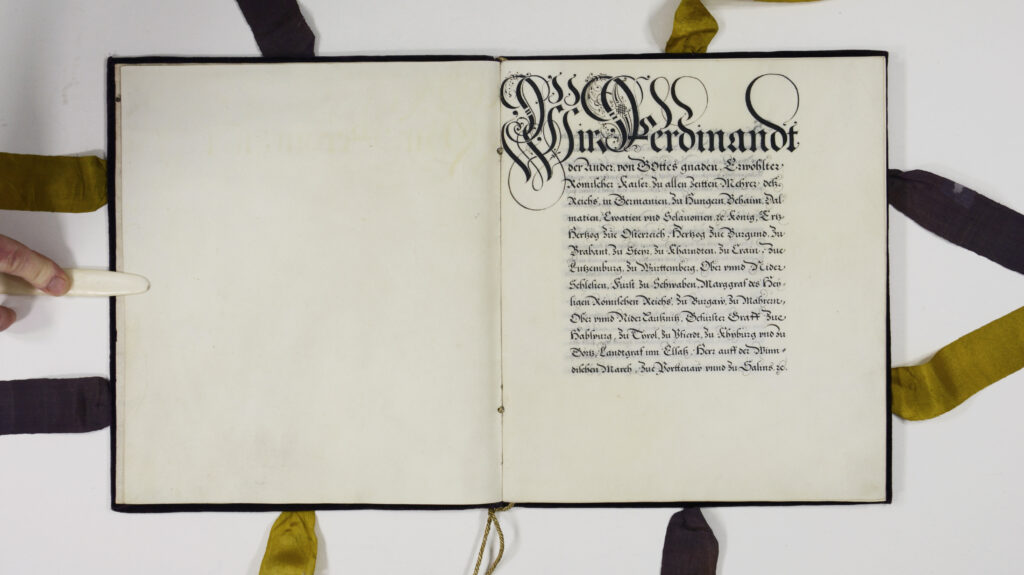 Wir Ferdinandt
der Ander, von GOttes gnaden, Erwöhlter
Römischer Kaiser, Zu allen Zeitten Mehrer deß
Reichs, in Germanien, Zu Hungern, Behaim, Dal-
matien, Croatien vnd Sclauonien ꝛc König, Ertz
Hertzog Züe Össterreich, Hertzog Züe Burgund, Zu
Brabant, Zu Steyr, Zu Kharndten, Zu Crain, Züe
Lutzemburg, Zu Württemberg, Ober vnnd Nider
Schlesien, Fürst Zu Schwaben, Marggraf des Hey-
ligen Römischen Reichs, Zu Burgaw, Zu Mahrern,
Ober vnnd Nider Laußnitz, Gefürster Graff Züe
Habspurg, Zu Tyrol, Zu Pfierdt, Zu Khyburg vnd zu
Görtz, Landtgraf im Elsaß, Herr auff der Winn-
dischen March, Züe Porttenaw vnnd Zu Salins ꝛc.